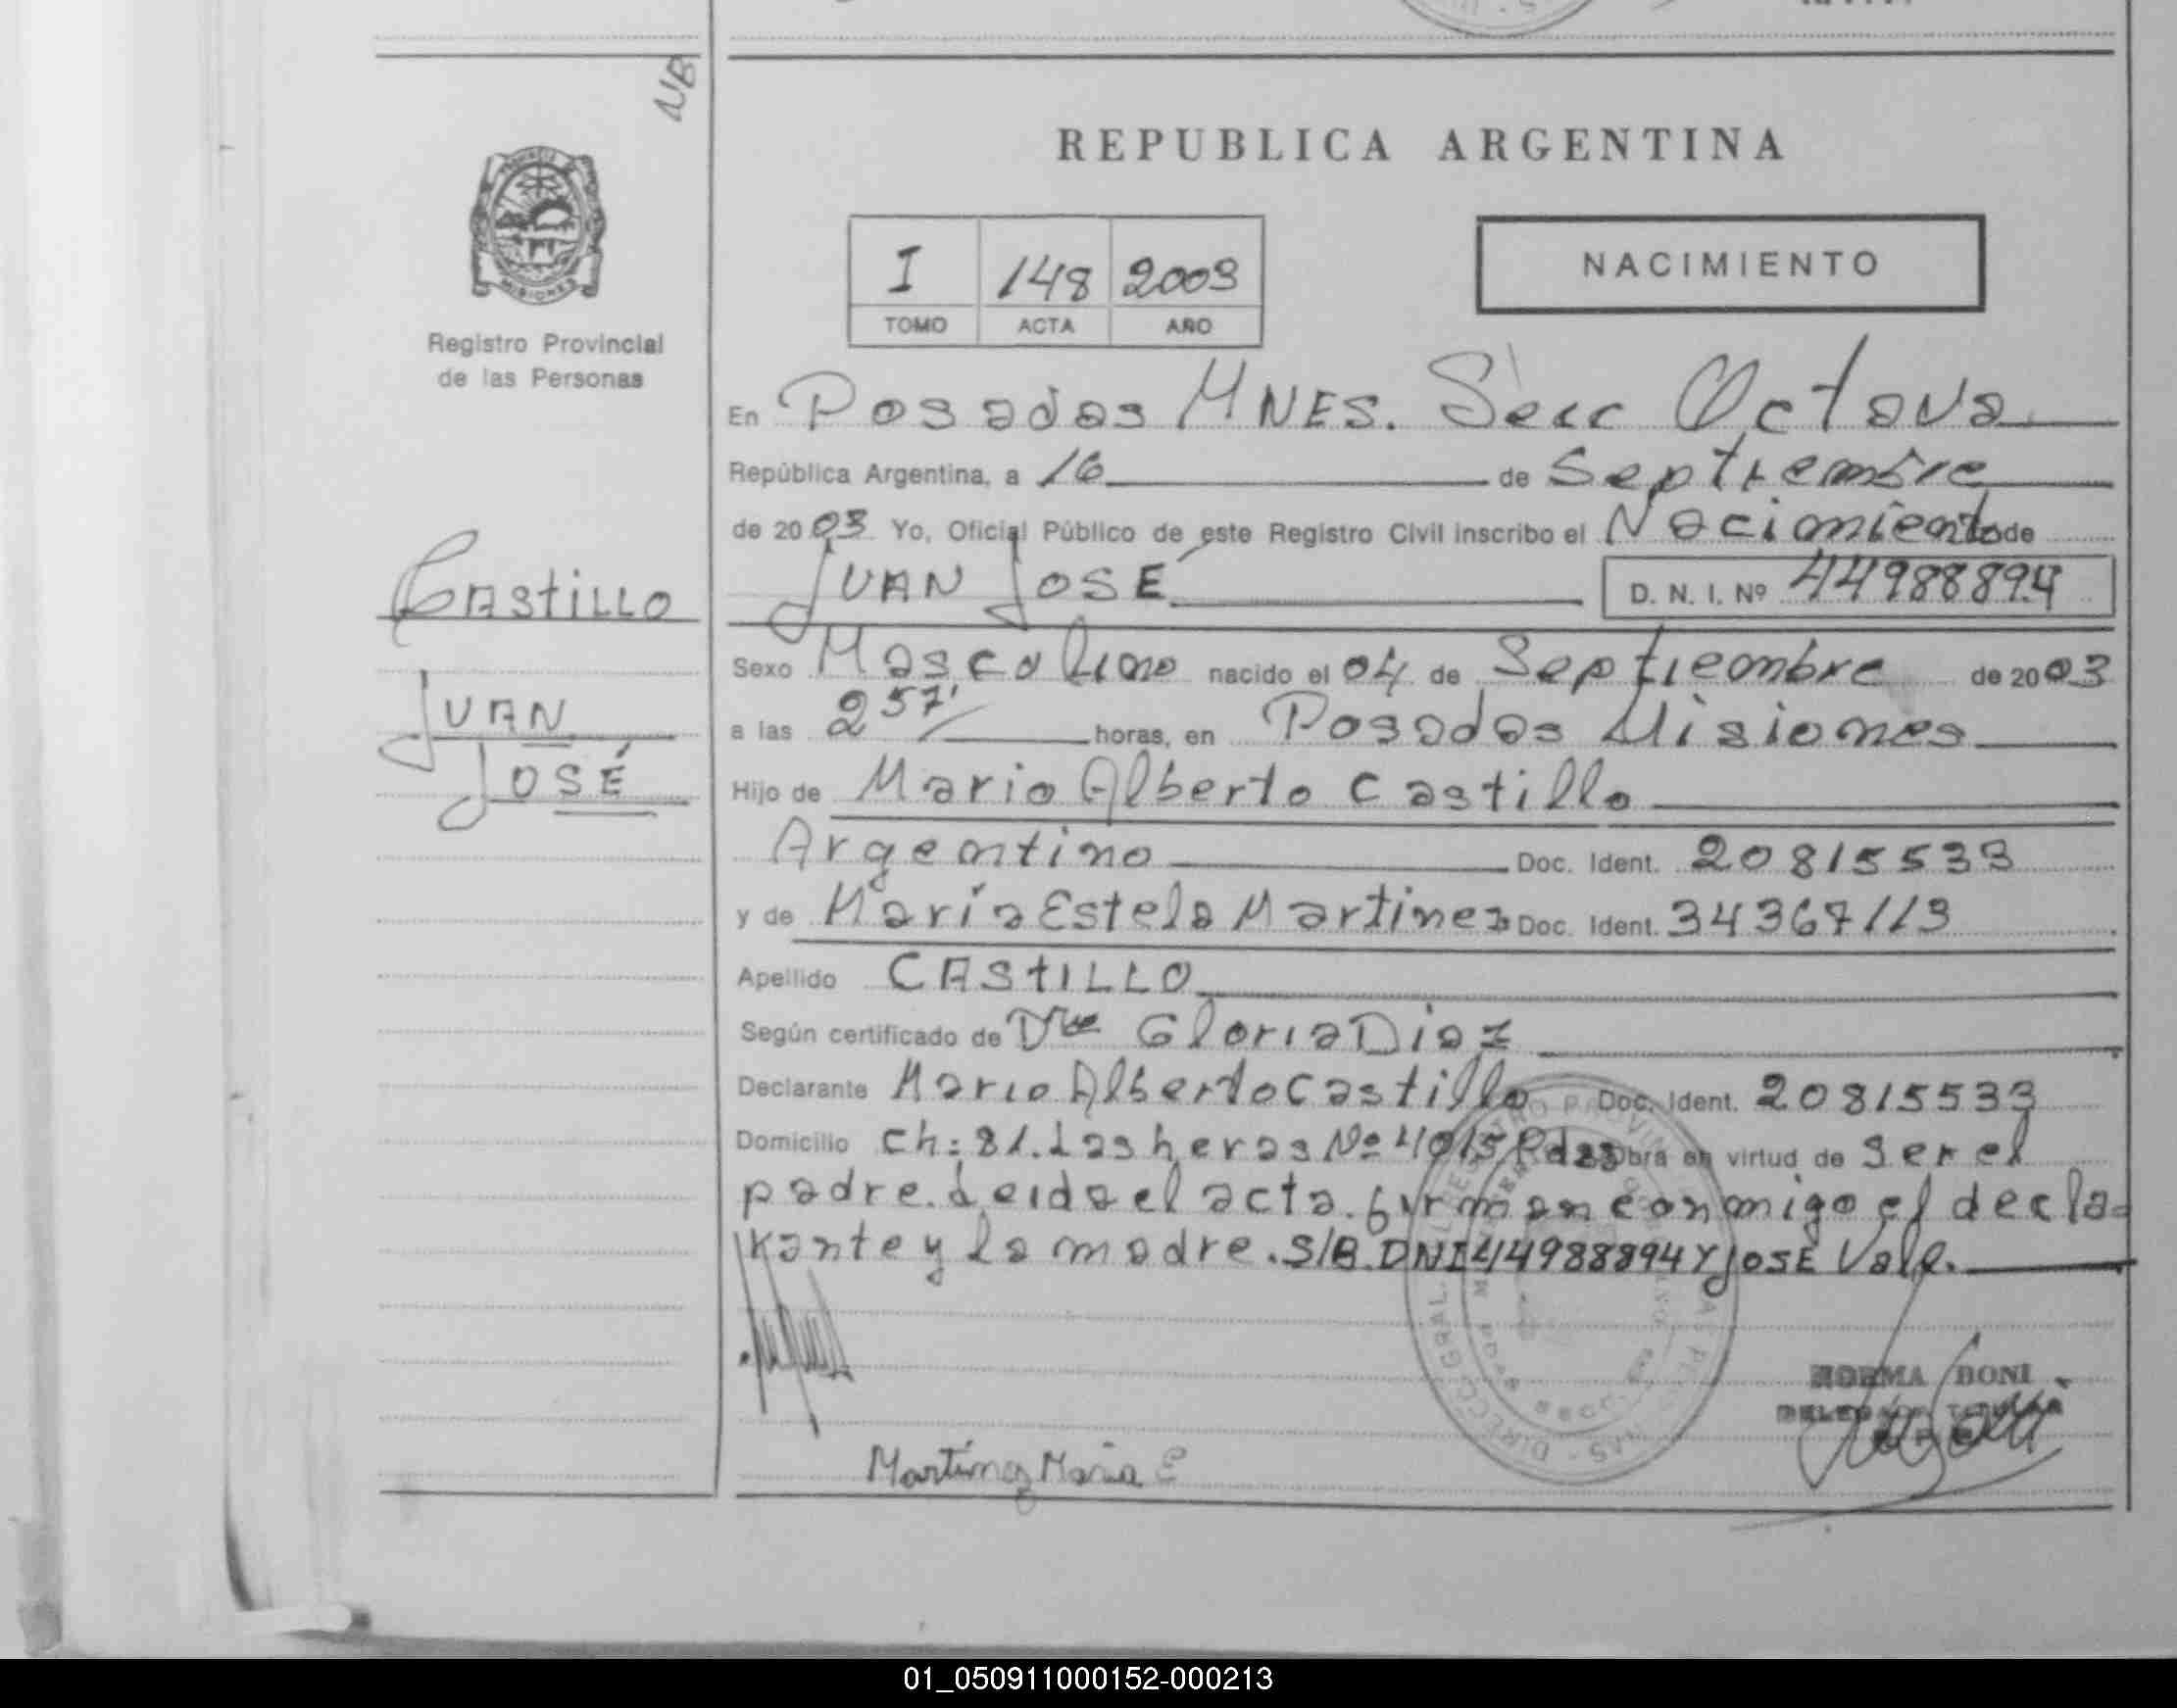 NB
REPUBLICA ARGENTINA
MISIONES
Registro Provincial
de las Personas
I 148 2003
TOMO ACTA AÑO
NACIMIENTO
En Posadas MNES. Secc Octava
República Argentina, a 16 de Septiembre
de 2003 Yo, Oficial Público de este Registro Civil inscribo el Nacimiento de
JUAN JOSÉ D. N. I. Nº 44988894
CASTILLO
JUAN
JOSÉ
Sexo Masculino nacido el 04 de Septiembre de 2003
a las 2 57' horas, en Posadas Misiones
Hijo de Mario Alberto Castillo
Argentino Doc. Ident. 20815533
y de María Estela Martinez Doc. Ident. 34367113
Apellido CASTILLO
Según certificado de Dra Gloria Diaz
Declarante Mario Alberto Castillo Doc. Ident. 20815533
Domicilio Ch: 81. Las heras Nº 4015 Pdas Obra en virtud de ser el
padre. Leida el acta. firman conmigo el decla=
rante y la madre. S/B. DNI 44988894 Y JOSÉ Vale.
NORMA BONI
Martínez María E
01_050911000152-000213